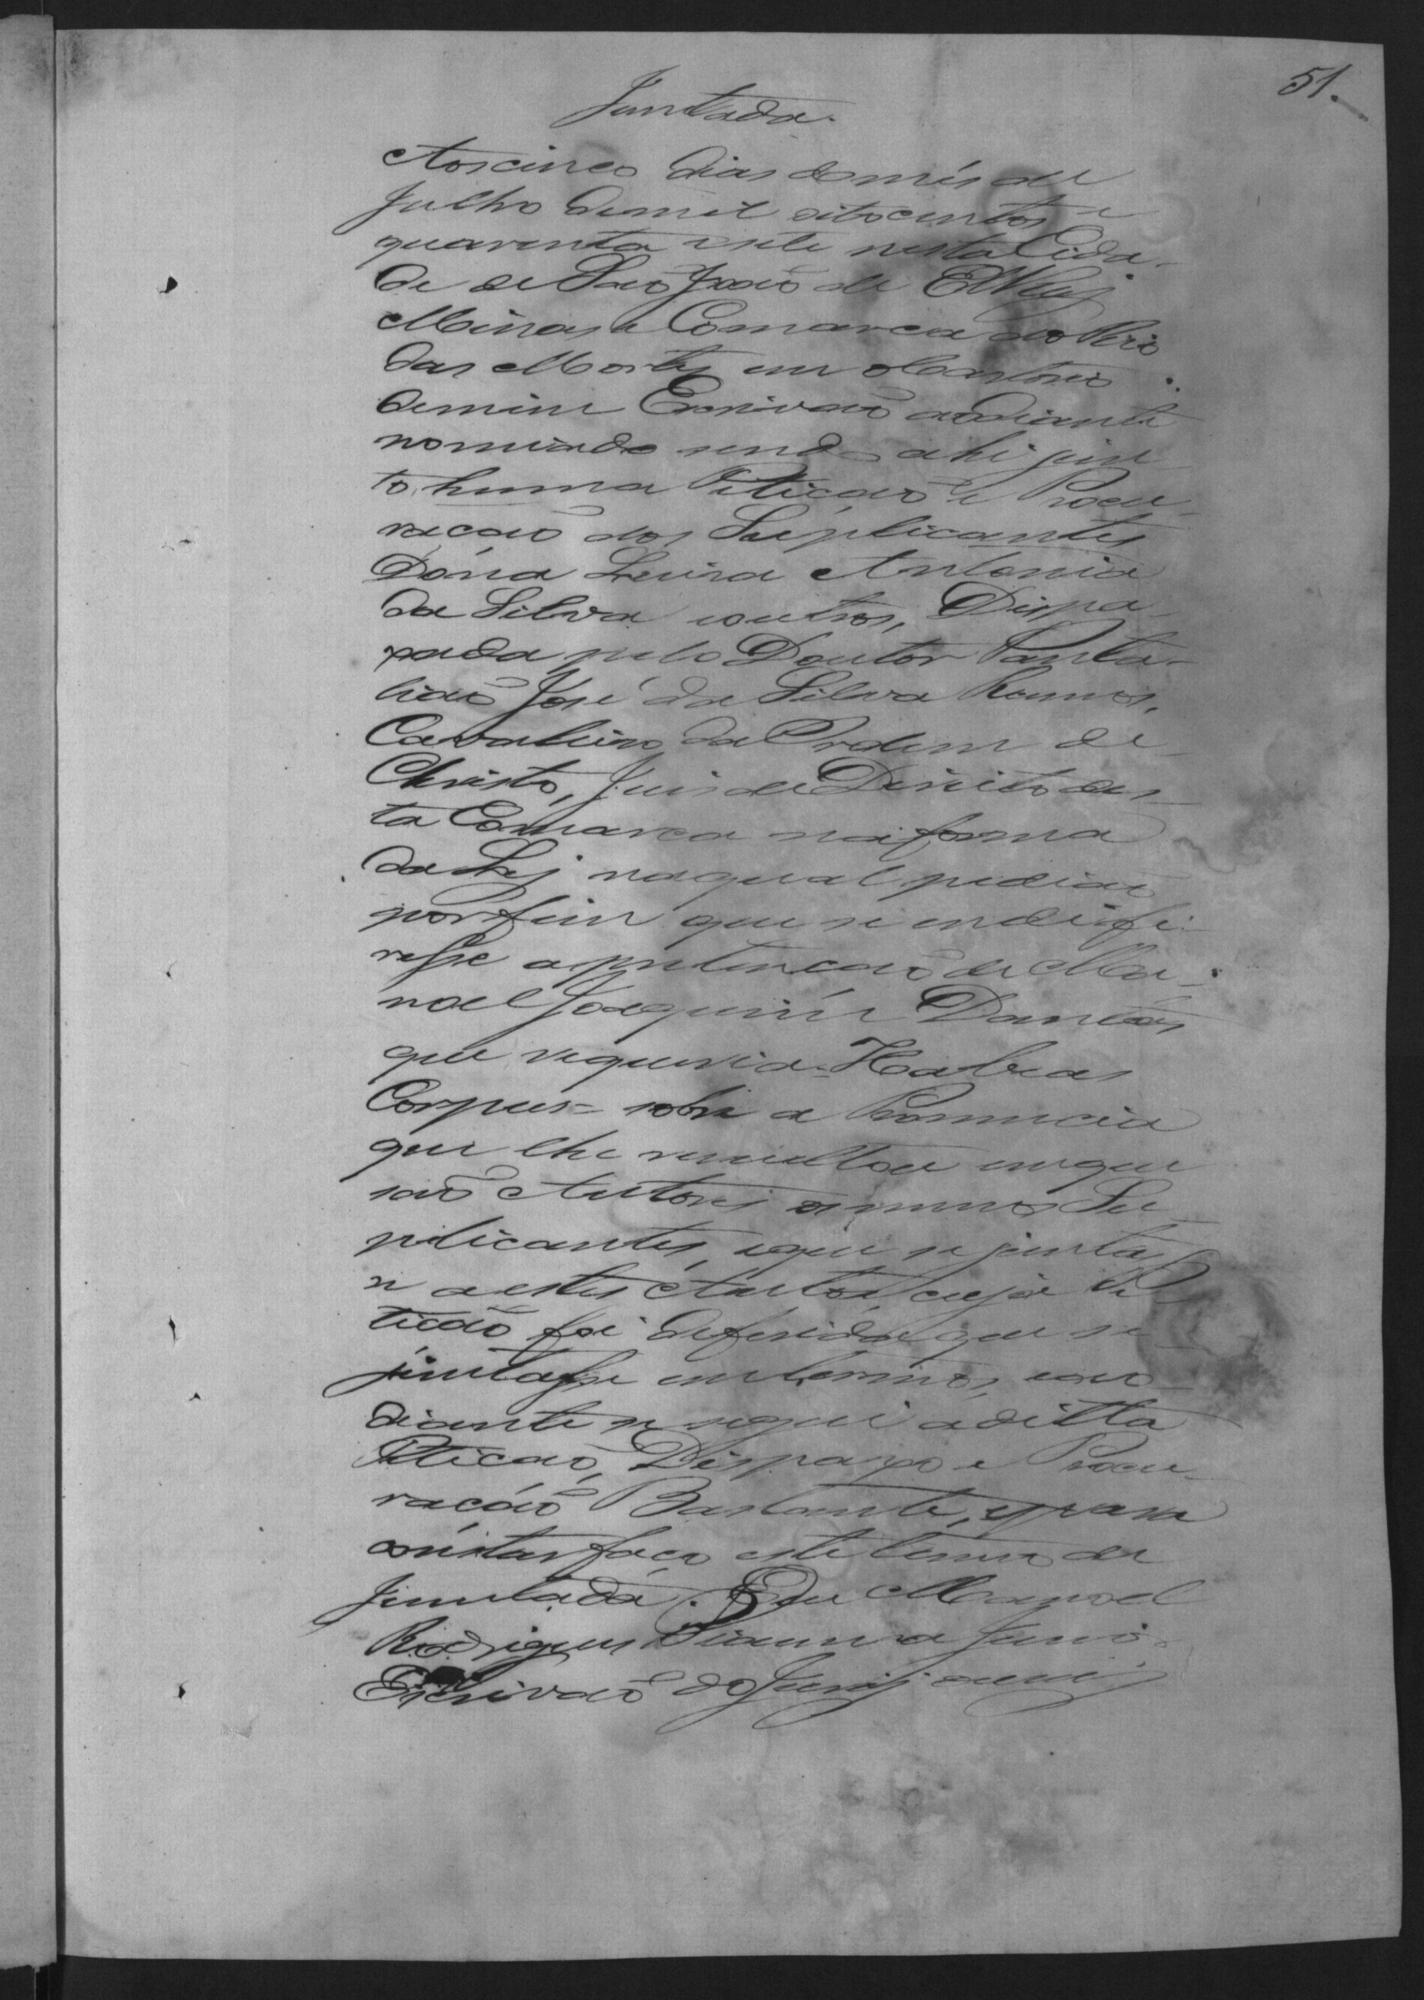 51.
Juntada.
Aos cinco dias do mês de
Julho de mil oitocentos e
quarenta e sete nesta Cida-
de de São João de ElRey
Minas e Comarca do Rio
das Mortes em o Cartorio
de mim Escrivão adiante
nomiado sendo ahi jun
to huma Petição e Procu-
ração dos Suplicantes
Dona Luisa Antonia
da Silva e outros, Dispa
xada pelo Doutor Panta-
lião José da Silva Ramos,
Cavalleiro da Ordem de
Christo, Juis de Direito des-
ta Comarca na forma
da Ley na qual pedião
por fim que se indefi-
risse a pertenção de Ma-
noel Joaquim Dantas
que requeria = Habeas
Corpus = sobre a Pronuncia
que lhe resultou em que
são Autores os mmos Su-
plicantes, e que se junta
se a estes Autos, cuja Pe
tição foi deferida que se
juntasse em termos, e ao
diante se segue a ditta
Petição, Dispaxo e Procu-
ração Bastante, e para
constar faço este termo de
Juntada. Eu Manoel
Rodrigues Junior
Escrivão do Jury